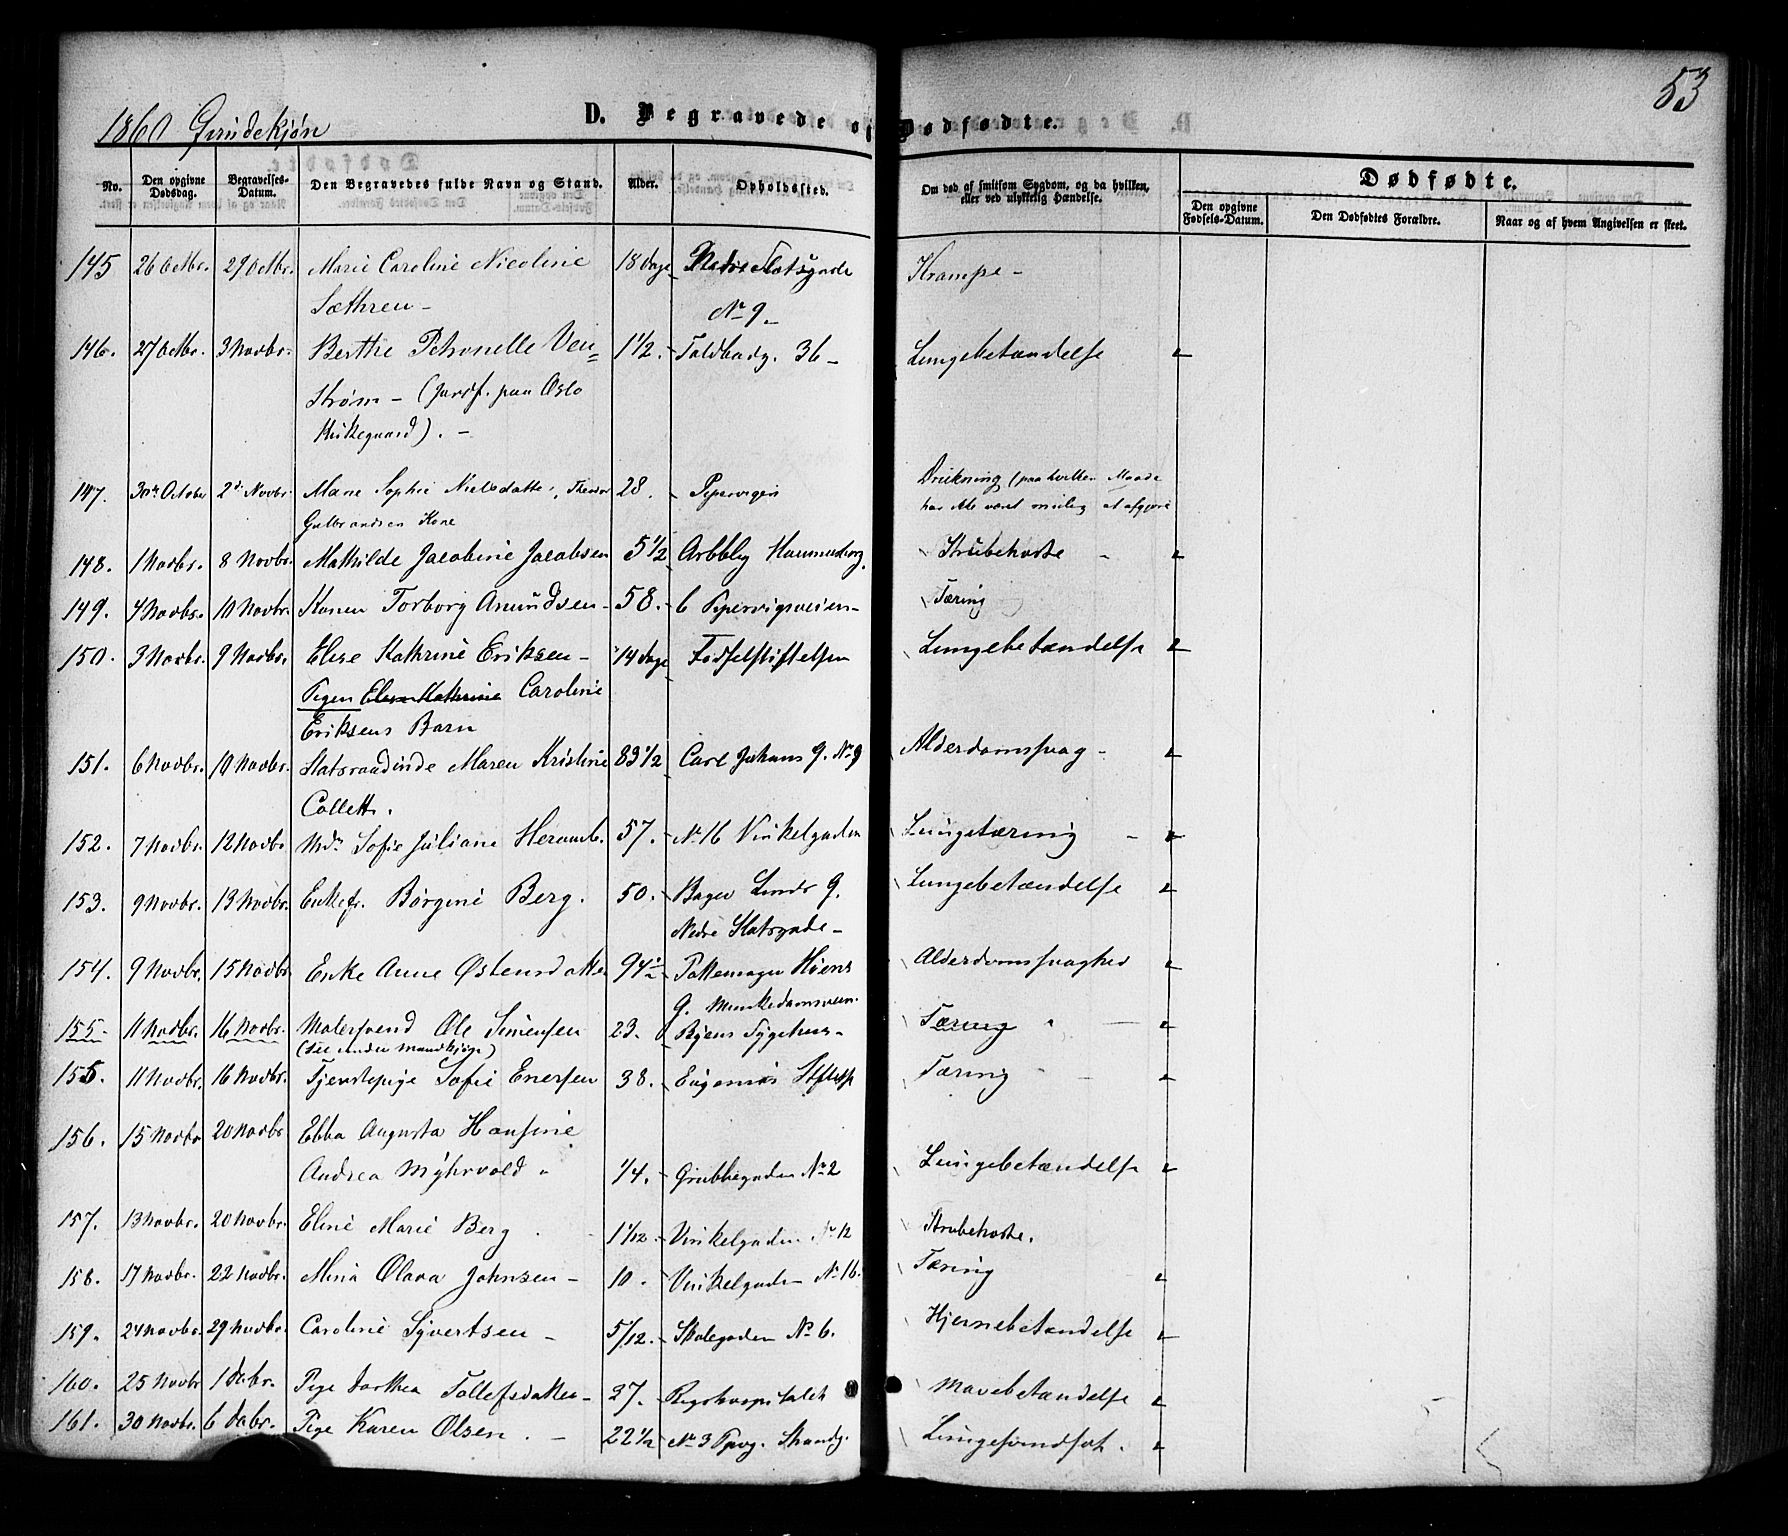 53
1860 Qvindekjøn
D. Begravede og Dødfødte.
No. | Den opgivne Dødsdag. | Begravelses-Datum. | Den Begravedes fulde Navn og Stand. | Alder. | Opholdssted. | Om død af smitsom Sygdom, og da hvilken, eller ved ulykkelig Hændelse. | Dødfødte.
Den opgivne Fødsels-Datum. | Den Dødfødtes Forældre. | Naar og af hvem Angivelsen er skeet.
145 | 26 Octbr. | 29 Octbr. | Marie Caroline Nicoline | 18 dage | Nedre Slotsgade | Krampe
Sæthren | No 9
146. | 27 Octbr. | 3 Novbr. | Berthe Petronelle Ven= | 1 1/2. | Toldbodg. 36 | Lungebetændelse
strøm (Jordf. paa Oslo
Kirkegaard).
147. | 30te October | 2d. Novbr. | Marie Sophie Nielsdatter, Theodor | 28. | Pipervigen | Drukning (paa hvilken Maade
Gulbrandsen Kone | har ikke været mulig at afgjøre
148. | 1 Novbr. | 8 Novbr. | Mathilde Jacobine Jacobsen | 5 1/2 | Arbbby Hammersborg. | Strubehoste
149. | 4 Novbr. | 10 Novbr. | Konen Torborg Amundsen | 58. | 6 Pipervigsveien | Tæring
150. | 3 Novbr. | 9 Novbr. | Elise Kathrine Eriksen | 14 dage | Fødselstiftelsen | Lungebetændelse
Pigen Elise Kathrine Caroline
Eriksens Barn
151. | 6 Novbr. | 10 Novbr. | Statsraadinde Maren Kristine | 83 1/2 | Carl Johans G. No 9 | Alderdomssvag
Collett.
152. | 7 Novbr. | 12 Novbr. | Md. Sofie Juliane Heramb. | 57. | No 16 Vinkelgaden | Lungetæring
153. | 9 Novbr. | 13 Novbr. | Enkefr. Børgine Berg. | 50. | Bager Linds G. | Lungebetændelse
Nedre Slotsgade
154. | 9 Novbr. | 15 Novbr. | Enke Anne Østensdatter | 94 1/2 | Pottemager Høiens | Alderdomssvaghed
G. Munkedamsveien.
155. | 11 Novbr. | 16 Novbr. | Malersvend Ole Simensen | 23. | Byens Sygehus | Tæring
(see under Mandkjøn)
155. | 11 Novbr. | 16 Novbr. | Tjenestepige Sofie Enersen | 38. | Eugenias Stiftelse | Tæring
156. | 15 Novbr | 20 Novbr | Ebba Augusta Hansine
Andrea Myhrvold | 1/4. | Grubbegaden No 2 | Lungebetændelse
157. | 13 Novbr. | 20 Novbr. | Eline Marie Berg | 1 1/12. | Vinkelgaden No 12 | Strubehoste.
158. | 17 Novbr. | 22 Novbr. | Mina Olava Johnsen | 10. | Vinkelgaden No 16. | Tæring
159. | 24 Novbr. | 29 Novbr. | Caroline Syvertsen | 5/12. | Skolegaden No 6. | Hjernebetændelse
160. | 25 Novbr | 1 Decbr. | Pige Dorthea Tollefsdatter | 27. | Rigshospitalet | Mavebetændelse
161. | 30 Novbr. | 6 Decbr. | Pige Karen Olsen. | 22 1/2 | No 3 Ppvg. Strandg.